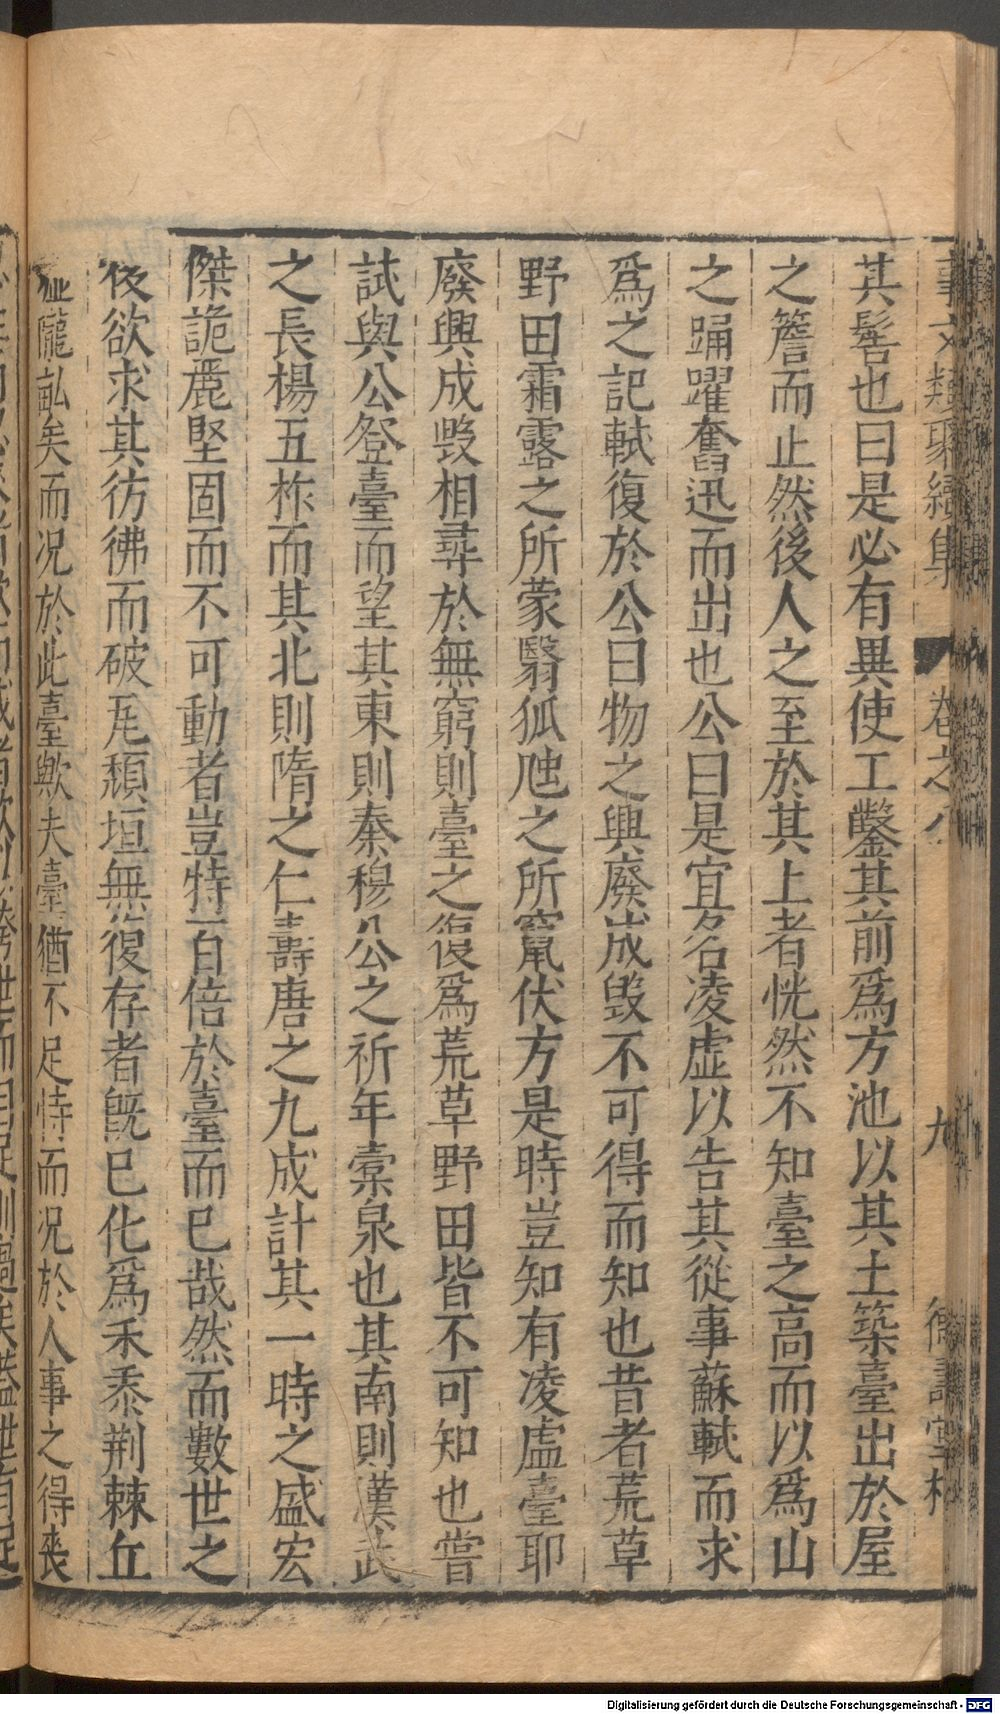 事文類聚續集 卷之八 九
其髻也曰是必有異使工鑿其前爲方池以其土築臺出於屋
之簷而止然後人之至於其上者恍然不知臺之高而以爲山
之踊躍奮迅而出也公曰是宜名凌虛以告其從事蘇軾而求
爲之記軾復於公曰物之興廢成毀不可得而知也昔者荒草
野田霜露之所蒙翳狐虺之所竄伏方是時豈知有凌虛臺耶
廢興成毀相尋於無窮則臺之復爲荒草野田皆不可知也嘗
試與公登臺而望其東則秦穆公之祈年橐泉也其南則漢武
之長楊五柞而其北則隋之仁壽唐之九成計其一時之盛宏
傑詭麗堅固而不可動者豈特百倍於臺而已哉然而數世之
後欲求其彷彿而破瓦頹垣無復存者旣已化爲禾黍荆棘丘
墟隴畝矣而况於此臺歟夫臺猶不足恃而况於人事之得喪
Digitalisierung gefördert durch die Deutsche Forschungsgemeinschaft - DFG